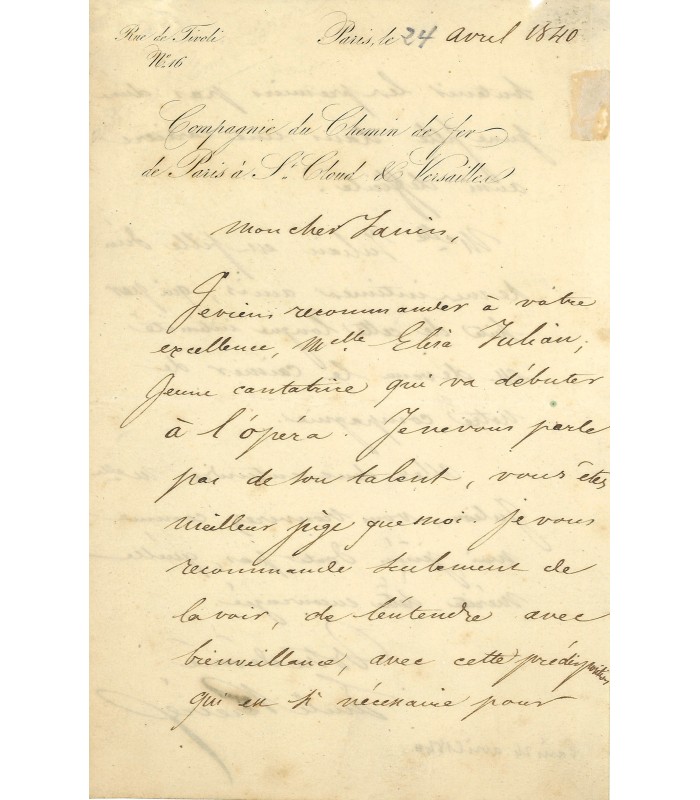 Rue de Tivoli
No. 16
Paris, le 24 avril 1840
Compagnie du Chemin de fer
de Paris à St. Cloud & Versailles
Mon cher Janin,
Je viens recommander à votre
excellence, Melle Elisa Julian,
jeune cantatrice qui va débuter
à l'opéra. Je ne vous parle
pas de son talent, vous êtes
meilleur juge que moi. je vous
recommande seulement de
la voir, de l'entendre avec
bienveillance, avec cette prédisposition
qui est si nécessaire pour